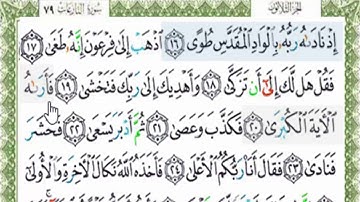 الجزء الثلاثون سورة النازعات ٧٩
إِذْ نَادَىٰهُ رَبُّهُۥ بِٱلْوَادِ ٱلْمُقَدَّسِ طُوًى ١٦ ٱذْهَبْ إِلَىٰ فِرْعَوْنَ إِنَّهُۥ طَغَىٰ ١٧
فَقُلْ هَل لَّكَ إِلَىٰٓ أَن تَزَكَّىٰ ١٨ وَأَهْدِيَكَ إِلَىٰ رَبِّكَ فَتَخْشَىٰ ١٩ فَأَرَىٰهُ
ٱلْـَٔايَةَ ٱلْكُبْرَىٰ ٢٠ فَكَذَّبَ وَعَصَىٰ ٢١ ثُمَّ أَدْبَرَ يَسْعَىٰ ٢٢ فَحَشَرَ
فَنَادَىٰ ٢٣ فَقَالَ أَنَا۠ رَبُّكُمُ ٱلْأَعْلَىٰ ٢٤ فَأَخَذَهُ ٱللَّهُ نَكَالَ ٱلْـَٔاخِرَةِ وَٱلْأُولَىٰٓ